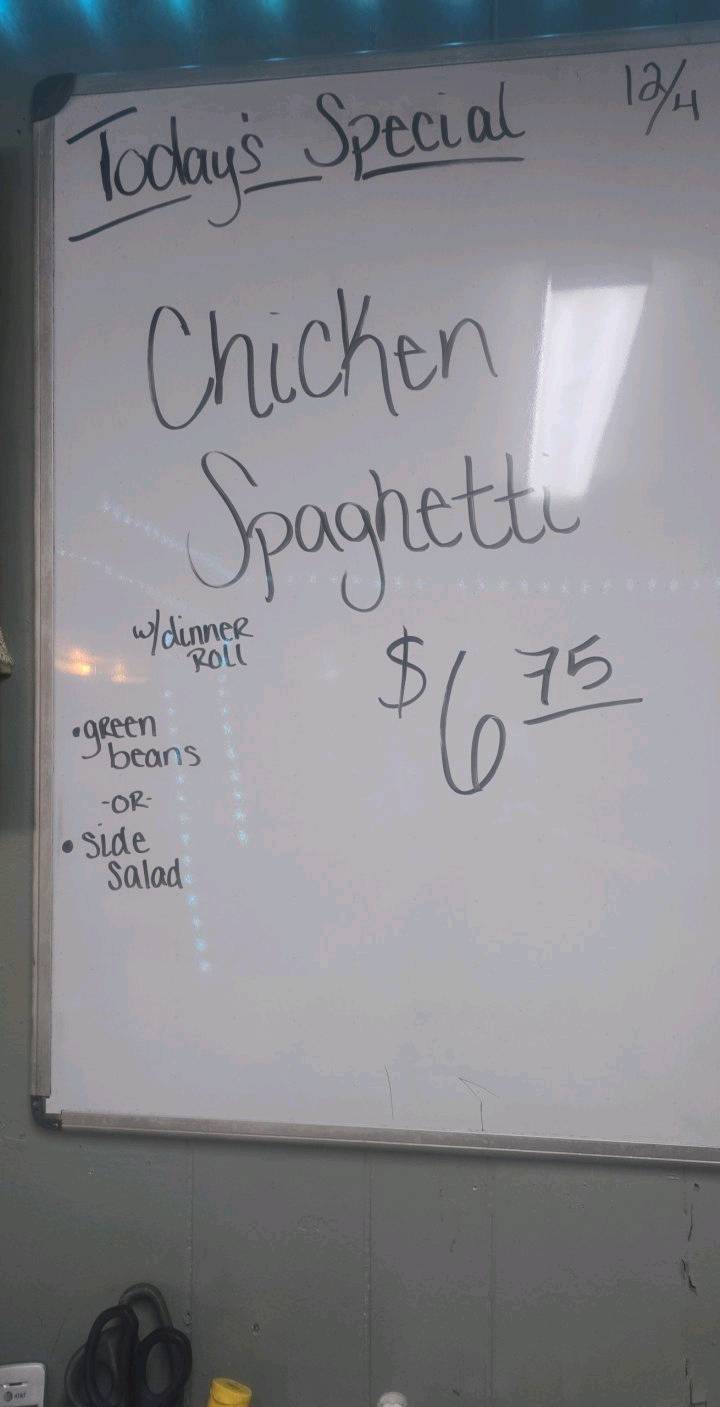 Today's Special 12/4
Chicken
Spaghetti
w/dinner
Roll
$6 75
•green
beans
-OR-
•side
salad
AT&T